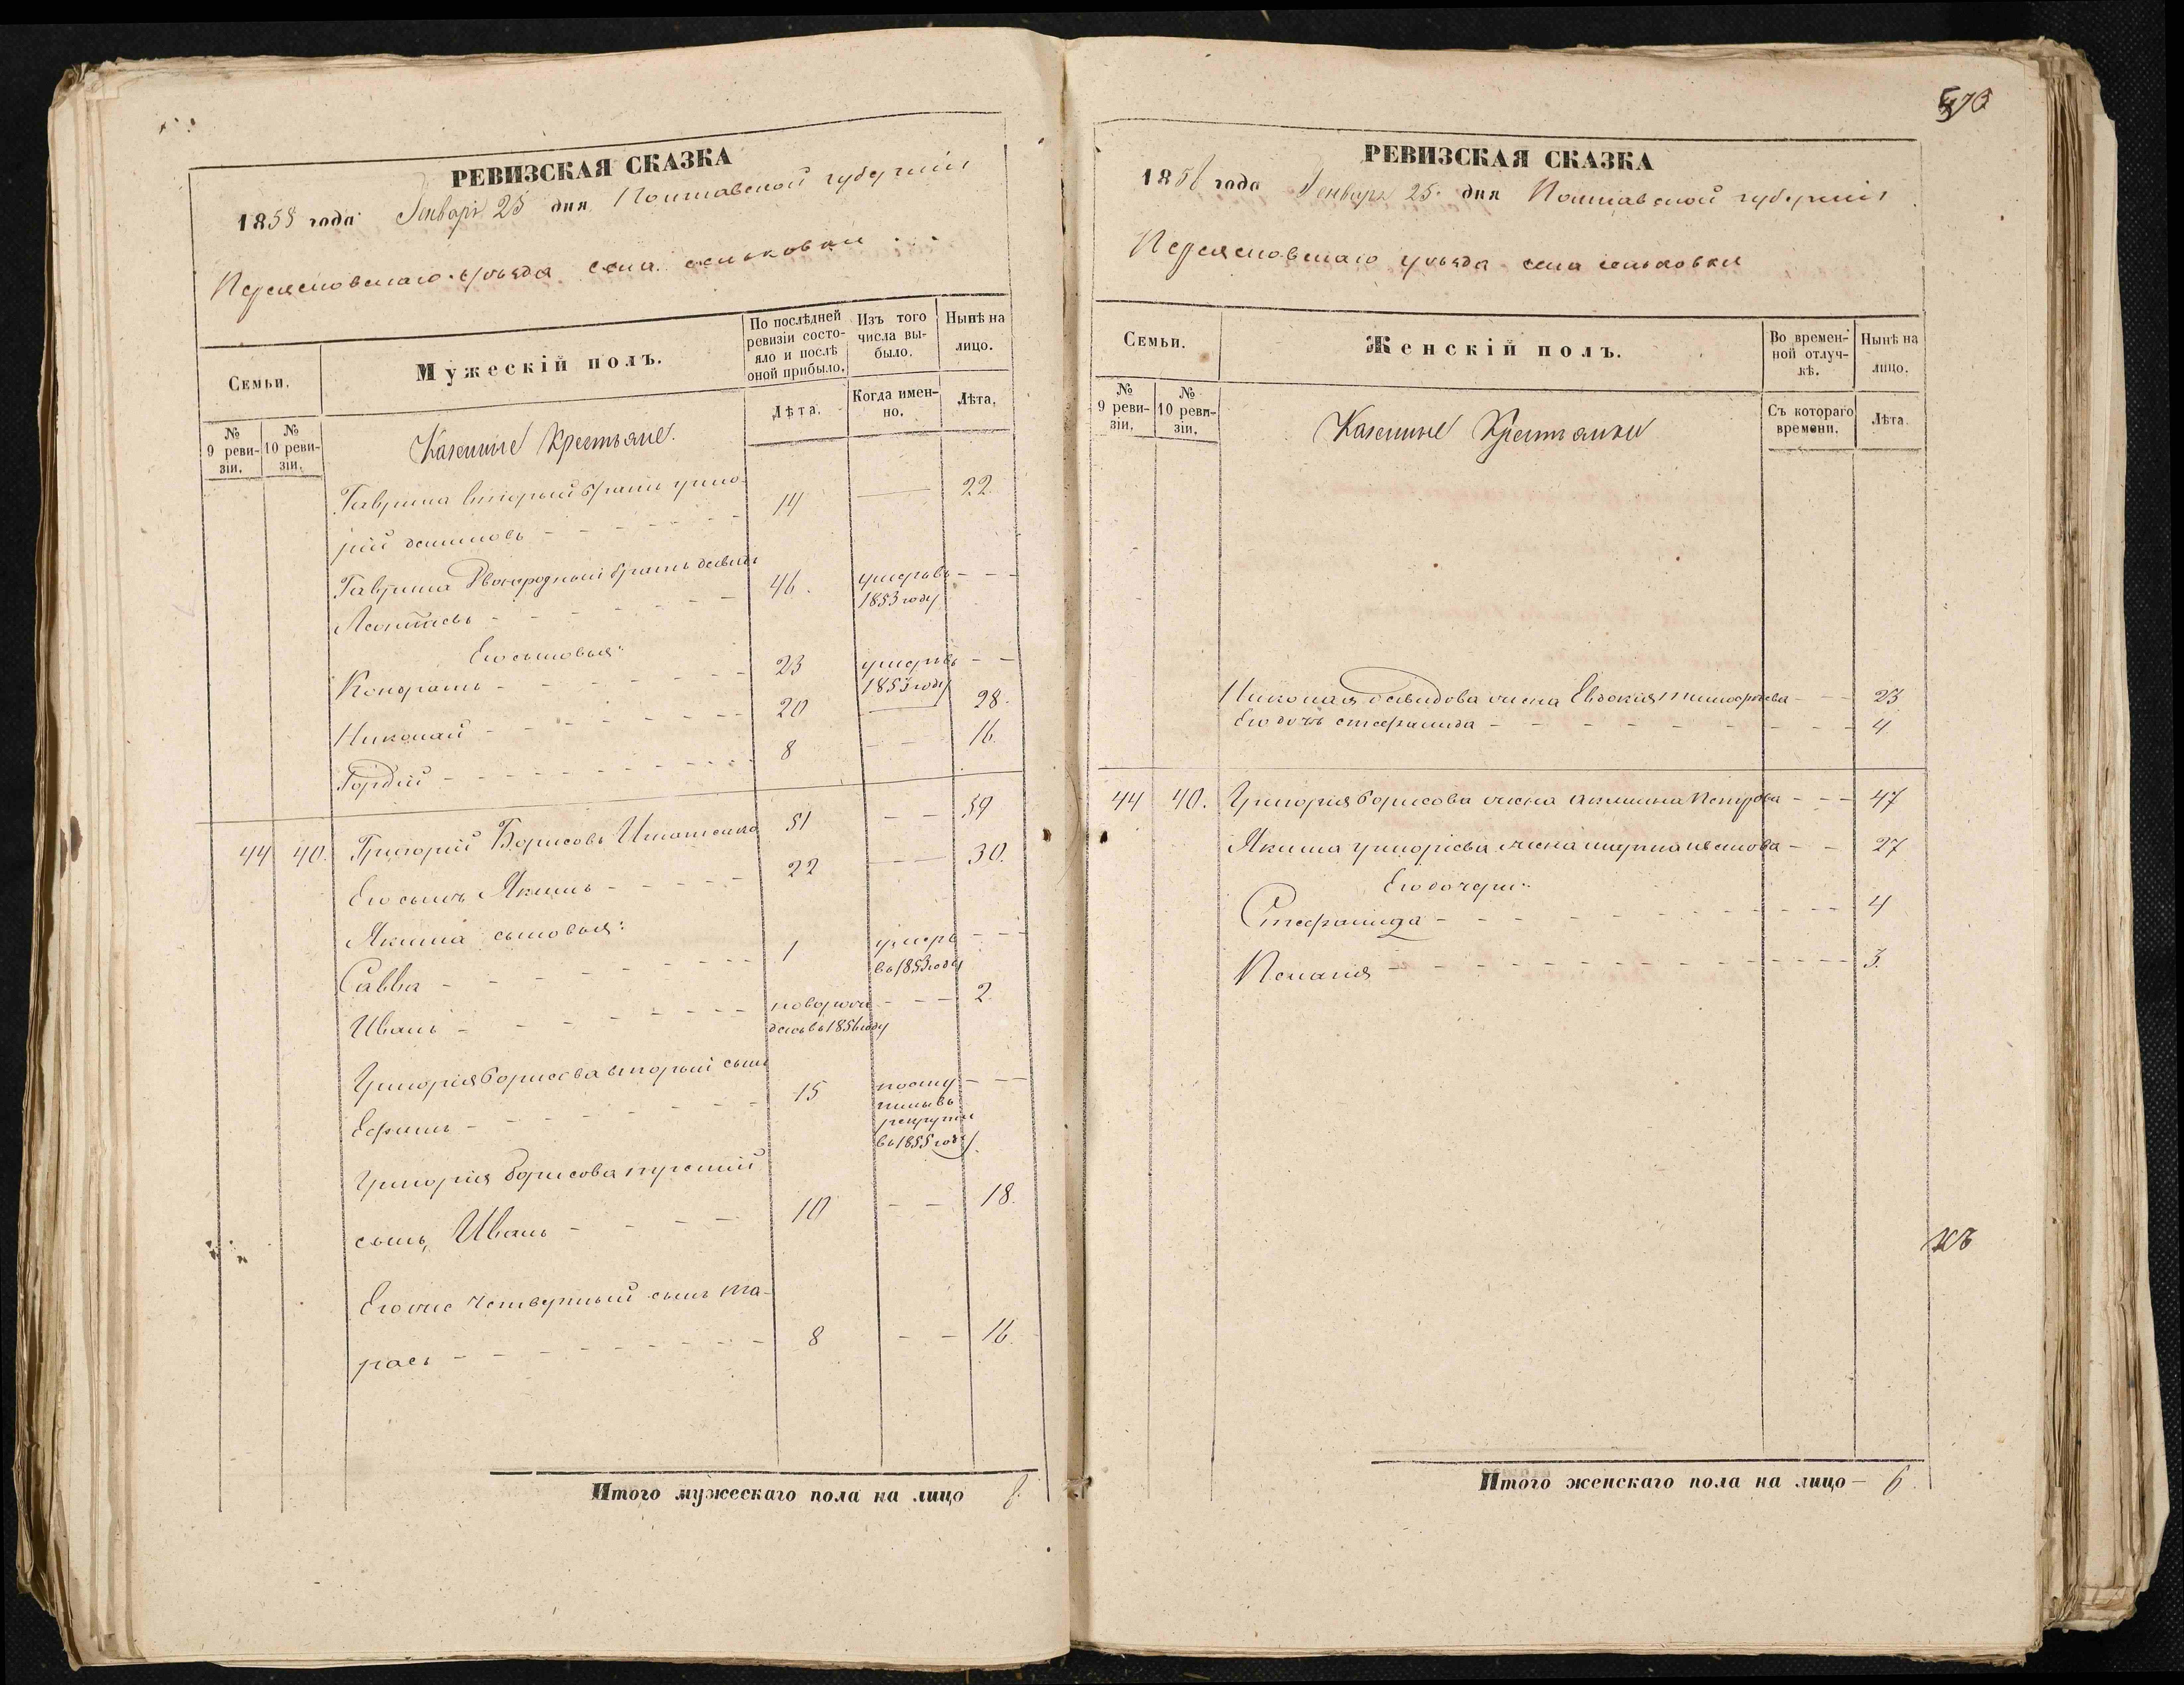 РЕВИЗСКАЯ СКАЗКА
1858 года Генваря 25 дня Полтавской губерніи
Переясловскаго уѣзда села сеньковки
Семьи.
Мужескій полъ.
По послѣдней ревизіи состояло и послѣ оной прибыло.
Изъ того числа выбыло.
Нынѣ на лицо.
№ 9 ревизіи.
№ 10 ревизіи.
Лѣта.
Когда именно.
Лѣта.
Казенные Крестьяне.
Гаврила вторый братъ григо-
рій 14 22
Гаврила Двоюродный братъ давидъ
Леонтіевъ 46. умеръ въ 1853 году
Его сыновья:
Кондратъ 23 умеръ въ 1853 году
Николай 20 28.
Гордій 8 16.
44 40. Григорій Борисовъ Игнатенко 51 59
Его сынъ Якимъ 22 30.
Якима сыновья:
Савва 1 умеръ въ 1853 году
Иванъ новорож
денъ въ 1856 году 2.
Григорія Борисова вторый сынъ
Ефимъ 15 посту
пилъ въ
рекруты
въ 1855 году.
Григорія Борисова третій
сынъ, Иванъ 10 18.
Его же четвертый сынъ Та-
расъ 8 16.
Итого мужескаго пола на лицо 8.
570
РЕВИЗСКАЯ СКАЗКА
1858 года Генваря 25 дня Полтавской губерніи
Переясловскаго уѣзда села сеньковки
Семьи.
Женскій полъ.
Во временной отлучкѣ.
Нынѣ на лицо.
№ 9 ревизіи.
№ 10 ревизіи.
Съ котораго времени.
Лѣта.
Казенные Крестьянки
Николая давидова жена Евдокія Тимофѣева 23
Его дочь стефанида 4
44 40. Григорія Борисова жена акилина Петрова 47
Якима григоріева жена марфа иванова 27
Его дочери:
Стефанида 4
Пелагія 3.
къ
Итого женскаго пола на лицо 6.